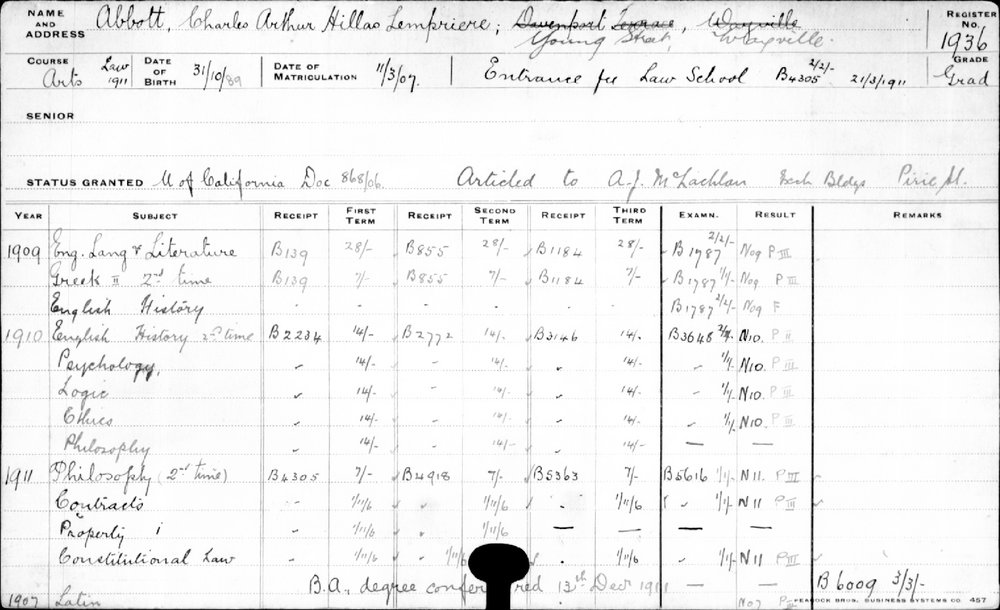 NAME AND ADDRESS Abbott, Charles Arthur Hillas Lempriere; Davenport Terrace, Wayville REGISTER No. 1936
Young Street, Wayville.
COURSE Arts Law 1911 DATE OF BIRTH 31/10/89 DATE OF MATRICULATION 11/3/07. Entrance fee Law School B4305 2/2/- 21/3/1911 GRADE Grad
SENIOR
STATUS GRANTED U of California Doc 868/06. Articled to A.J. McLachlan Exch Bldgs Pirie St.
YEAR SUBJECT RECEIPT FIRST TERM RECEIPT SECOND TERM RECEIPT THIRD TERM EXAMN. RESULT REMARKS
1909 Eng. Lang & Literature B139 28/- B855 28/- B1184 28/- B1787 2/2/- N09 P III
Greek II 2nd time B139 7/- B855 7/- B1184 7/- B1787 1/1/- N09 P III
English History - - - - - - B1787 2/2/- N09 F
1910 English History 2nd time B2234 14/- B2772 14/- B3146 14/- B3648 N10. P II
Psychology, " 14/- " 14/- " 14/- " 1/1/- N10. P III
Logic " 14/- " 14/- " 14/- " 1/1/- N10. P III
Ethics " 14/- " 14/- " 14/- " 1/1/- N10. P III
Philosophy 14/- " 14/- 14/- — —
1911 Philosophy (2nd time) B4305 7/- B4918 7/- B5363 7/- B5616 1/1/- N11. P III
Contracts " 1/11/6 " 1/11/6 " 1/11/6 " 1/1/- N11 P III
Property i " 1/11/6 1/11/6 — — — —
Constitutional Law " 1/11/6 1/11/6 1/11/6 " 1/1/- N11 P III
B.A. degree conferred 13th Decr 1911 — — B6009 3/3/-
1907 Latin N07
PEACOCK BROS. BUSINESS SYSTEMS CO 457